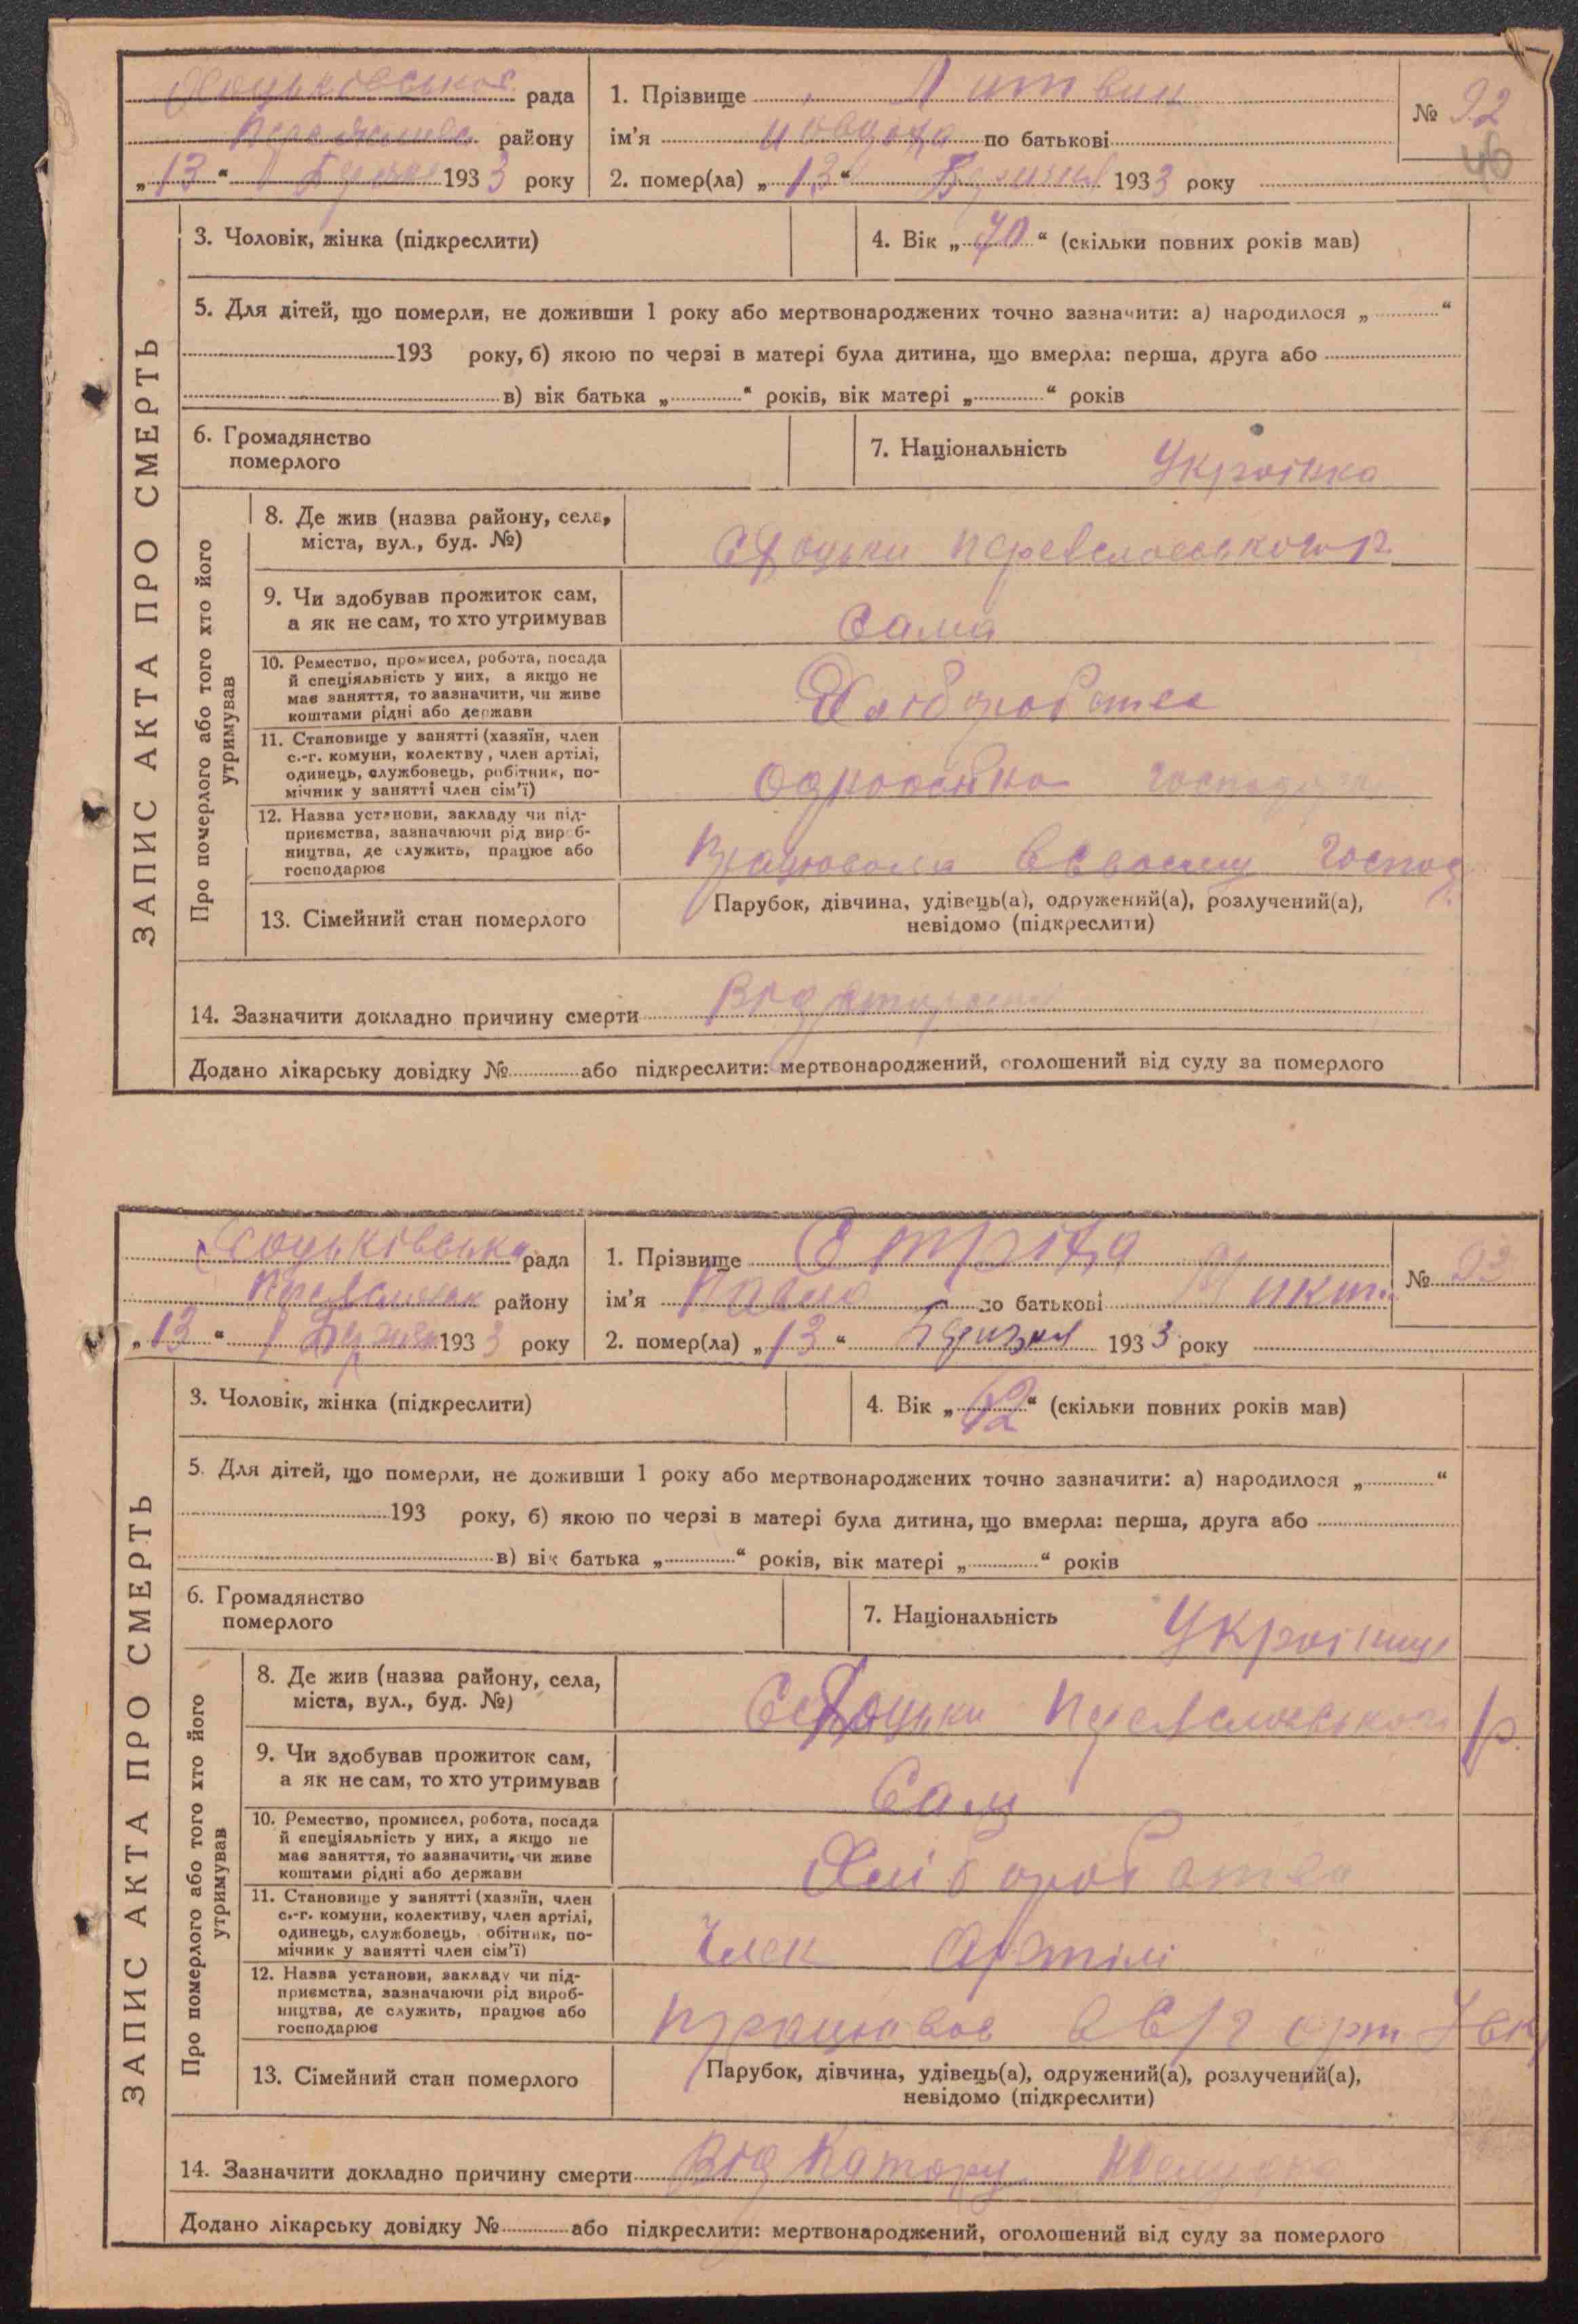 Хоцьківська рада
району
„13“ 1933 року
1. Прізвище Литвин
ім'я по батькові
2. помер(ла) „13“ 1933 року
№ 92
46
ЗАПИС АКТА ПРО СМЕРТЬ
3. Чоловік, жінка (підкреслити)
4. Вік „70“ (скільки повних років мав)
5. Для дітей, що померли, не доживши 1 року або мертвонароджених точно зазначити: а) народилося „ “
193 року, б) якою по черзі в матері була дитина, що вмерла: перша, друга або
в) вік батька „ “ років, вік матері „ “ років
6. Громадянство
померлого
7. Національність Українка
Про померлого або того хто його
утримував
8. Де жив (назва району, села,
міста, вул., буд. №)
Хоцьки
9. Чи здобував прожиток сам,
а як не сам, то хто утримував
Сама
10. Ремество, промисел, робота, посада
й спеціяльність у них, а якщо не
має заняття, то зазначити, чи живе
коштами рідні або держави
Хліборобство
11. Становище у занятті (хазяїн, член
с.-г. комуни, колектву, член артілі,
одинець, службовець, робітник, по-
мічник у занятті член сім'ї)
12. Назва установи, закладу чи під-
приємства, зазначаючи рід вироб-
ництва, де служить, працює або
господарює
Працювала в своєму господ
13. Сімейний стан померлого
Парубок, дівчина, удівець(а), одружений(а), розлучений(а),
невідомо (підкреслити)
14. Зазначити докладно причину смерти Від старости
Додано лікарську довідку № або підкреслити: мертвонароджений, оголошений від суду за померлого
Хоцьківська рада
району
„13“ 1933 року
1. Прізвище Стріха
ім'я Павло по батькові Микит.
2. помер(ла) „13“ Березня 1933 року
№ 93
ЗАПИС АКТА ПРО СМЕРТЬ
3. Чоловік, жінка (підкреслити)
4. Вік „ “ (скільки повних років мав)
5. Для дітей, що померли, не доживши 1 року або мертвонароджених точно зазначити: а) народилося „ “
193 року, б) якою по черзі в матері була дитина, що вмерла: перша, друга або
в) вік батька „ “ років, вік матері „ “ років
6. Громадянство
померлого
7. Національність Українець
Про померлого або того хто його
утримував
8. Де жив (назва району, села,
міста, вул., буд. №)
Хоцьки р.
9. Чи здобував прожиток сам,
а як не сам, то хто утримував
Сам
10. Ремество, промисел, робота, посада
й спеціяльність у них, а якщо не
має заняття, то зазначити, чи живе
коштами рідні або держави
Хліборобство
11. Становище у занятті (хазяїн, член
с.-г. комуни, колективу, член артілі,
одинець, службовець, обітник, по-
мічник у занятті член сім'ї)
Член Артілі
12. Назва установи, закладу чи під-
приємства, зазначаючи рід вироб-
ництва, де служить, працює або
господарює
Працював в с/г арт
13. Сімейний стан померлого
Парубок, дівчина, удівець(а), одружений(а), розлучений(а),
невідомо (підкреслити)
14. Зазначити докладно причину смерти Від Катару
Додано лікарську довідку № або підкреслити: мертвонароджений, оголошений від суду за померлого